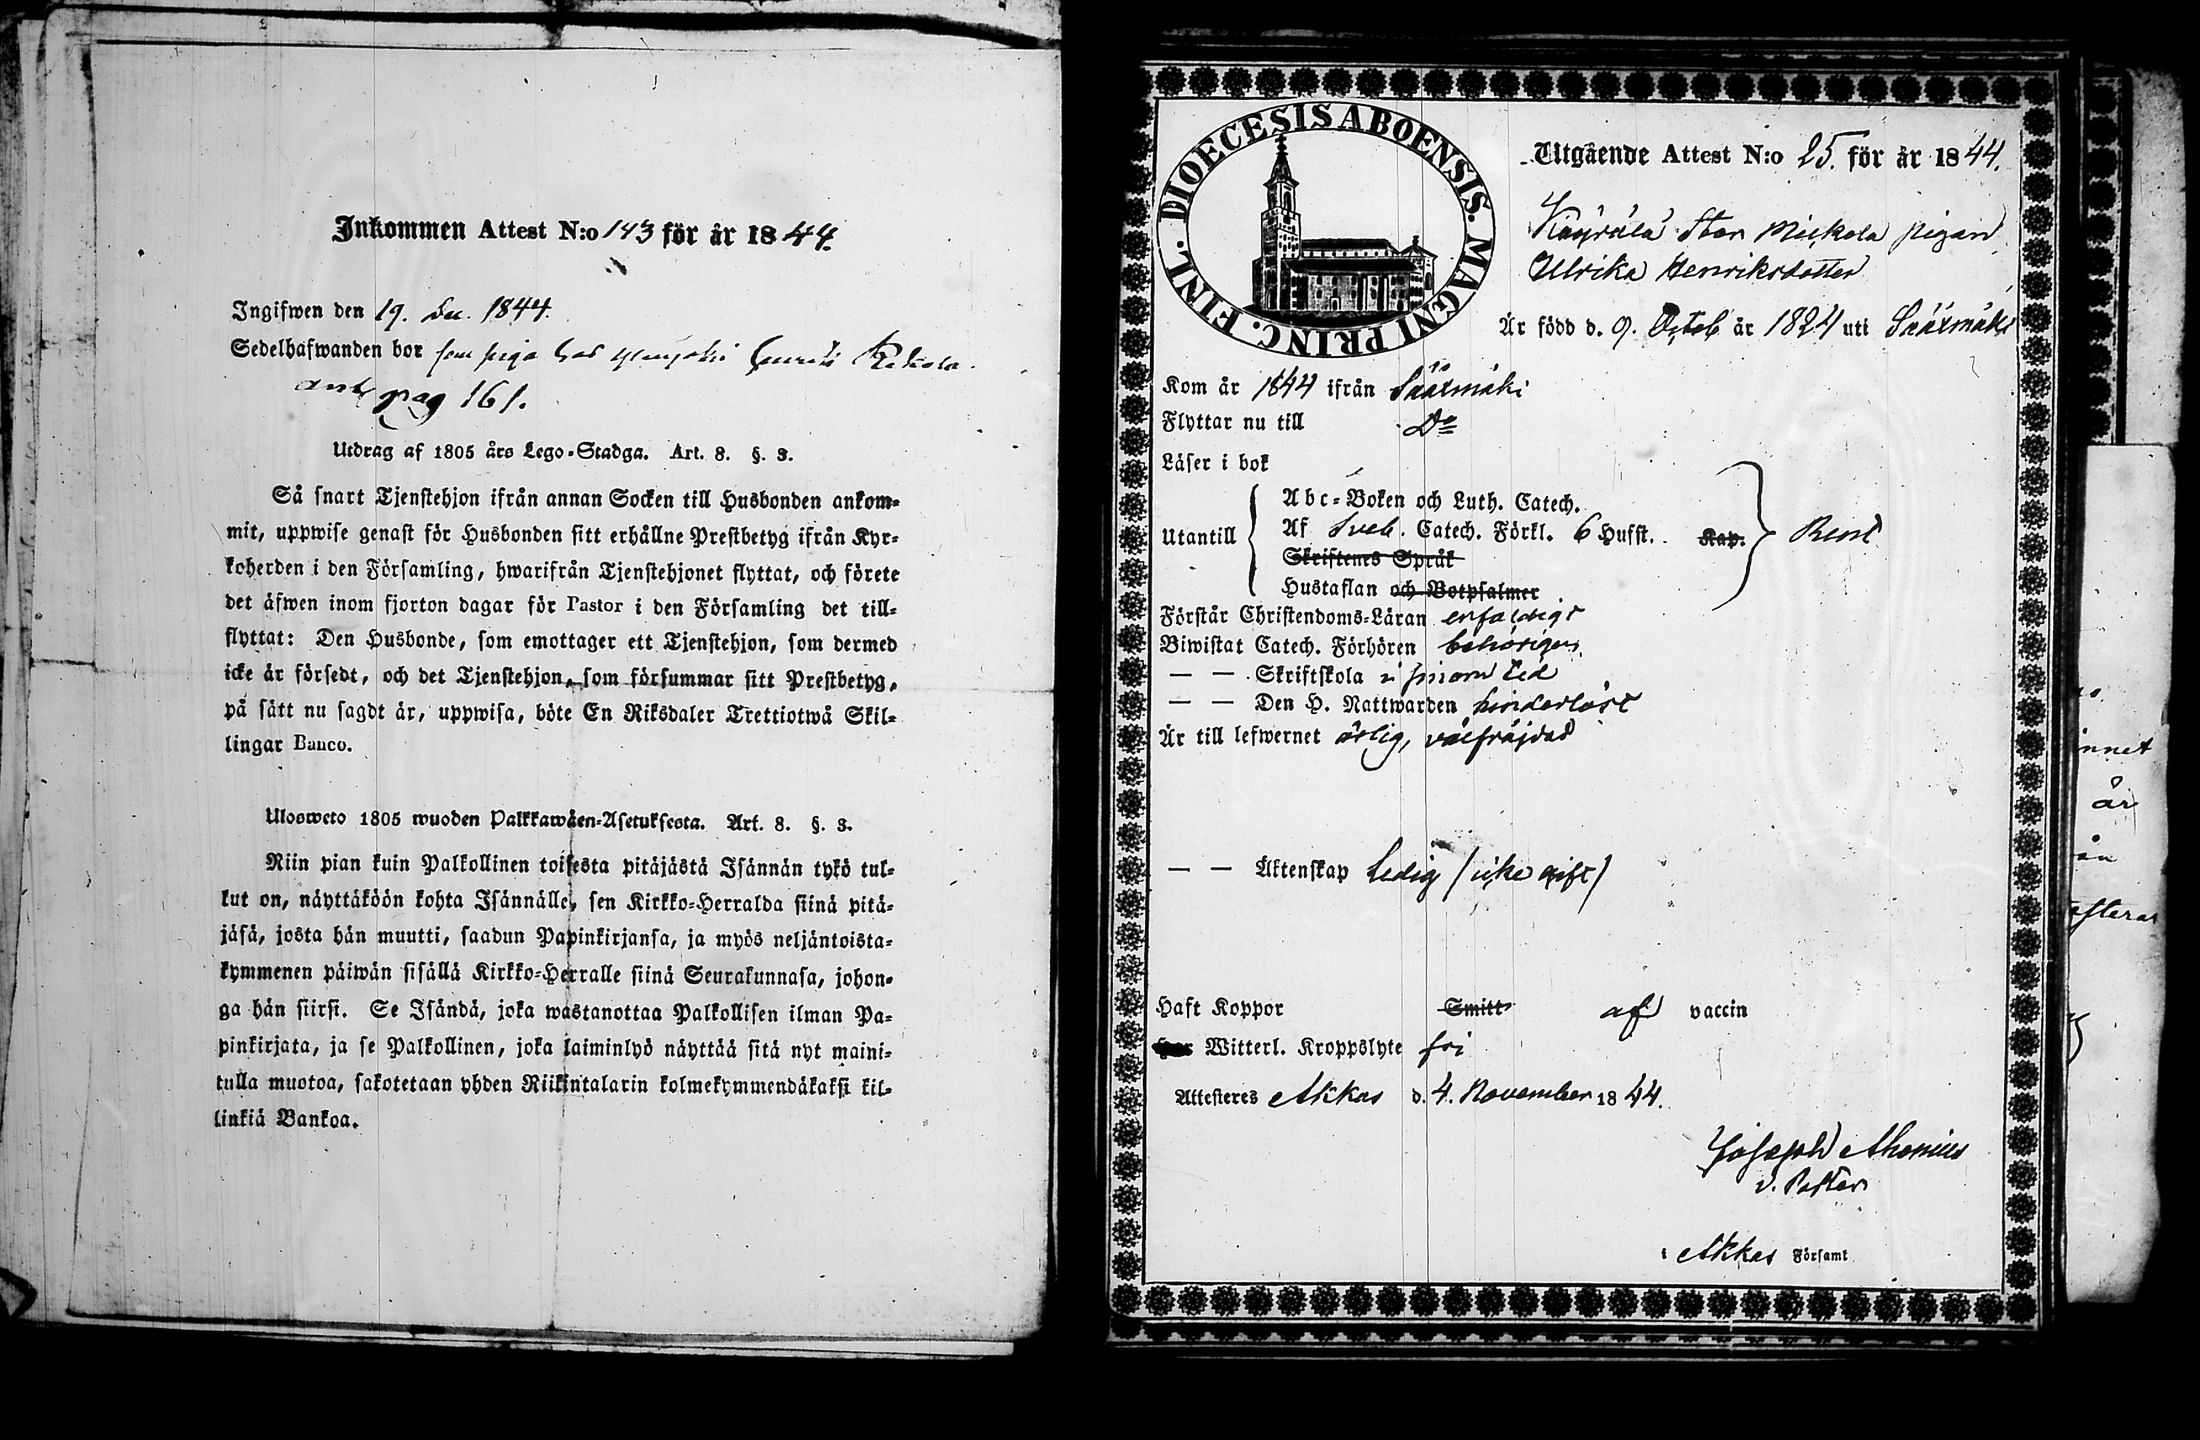 Inkommen Attest N:o 143 för år 1844.
Ingifwen den 19. Dec. 1844.
Sedelhafwanden bor som piga hos
pag 161.
Utdrag af 1805 års Lego-Stadga. Art. 8. §. 3.
Så snart Tjenstehjon ifrån annan Socken till Husbonden ankom-
mit, uppwise genast för Husbonden sitt erhållne Prestbetyg ifrån Kyr-
koherden i den Församling, hwarifrån Tjenstehjonet flyttat, och förete
det äfwen inom fjorton dagar för Pastor i den Församling det till-
flyttat: Den Husbonde, som emottager ett Tjenstehjon, som dermed
icke är försedt, och det Tjenstehjon, som försummar sitt Prestbetyg,
på sätt nu sagdt är, uppwisa, böte En Riksdaler Trettiotwå Skil-
lingar Banco.
Ulosweto 1805 wuoden Palkkawäen-Asetuksesta. Art. 8. §. 3.
Niin pian kuin Palkollinen toisesta pitäjästä Isännän tykö tul-
lut on, näyttäköön kohta Isännälle, sen Kirkko-Herralda siinä pitä-
jäsä, josta hän muutti, saadun Papinkirjansa, ja myös neljäntoista-
kymmenen päiwän sisällä Kirkko-Herralle siinä Seurakunnasa, johon-
ga hän siirsi. Se Isändä, joka wastanottaa Palkollisen ilman Pa-
pinkirjata, ja se Palkollinen, joka laiminlyö näyttää sitä nyt maini-
tulla muotoa, sakotetaan yhden Riikintalarin kolmekymmendäkaksi kil-
linkiä Bankoa.
DIOECESIS ABOENSIS. MAGNI PRINC. FINL.
Utgående Attest N:o 25. för år 1844.
Stor Mickola pigan
Ulrika Henriksdotter
Är född d. 9. Octob år 1824 uti Sääxmäki
Kom år 1844 ifrån Sääxmäki
Flyttar nu till Do
Läser i bok
Abc-Boken och Luth. Catech.
Utantill Af Sveb. Catech. Förkl. 6 Hufst. Kap. Rent
Skriftenes Språk
Hustaflan och Botpsalmer
Förstår Christendoms-Läran enfaldigt
Biwistat Catech. Förhören behörigen
— — Skriftskola i sinom tid
— — Den H. Nattwarden hinderlöst
Är till lefwernet ärlig, välfräjdad
— — Äktenskap Ledig (icke gift)
Haft Koppor Smitt af vaccin
Witterl. Kroppslyte fri
Attesteres Akkas d. 4. November 1844.
Joseph Ahonius
v. Pastor
i Akkas Församl